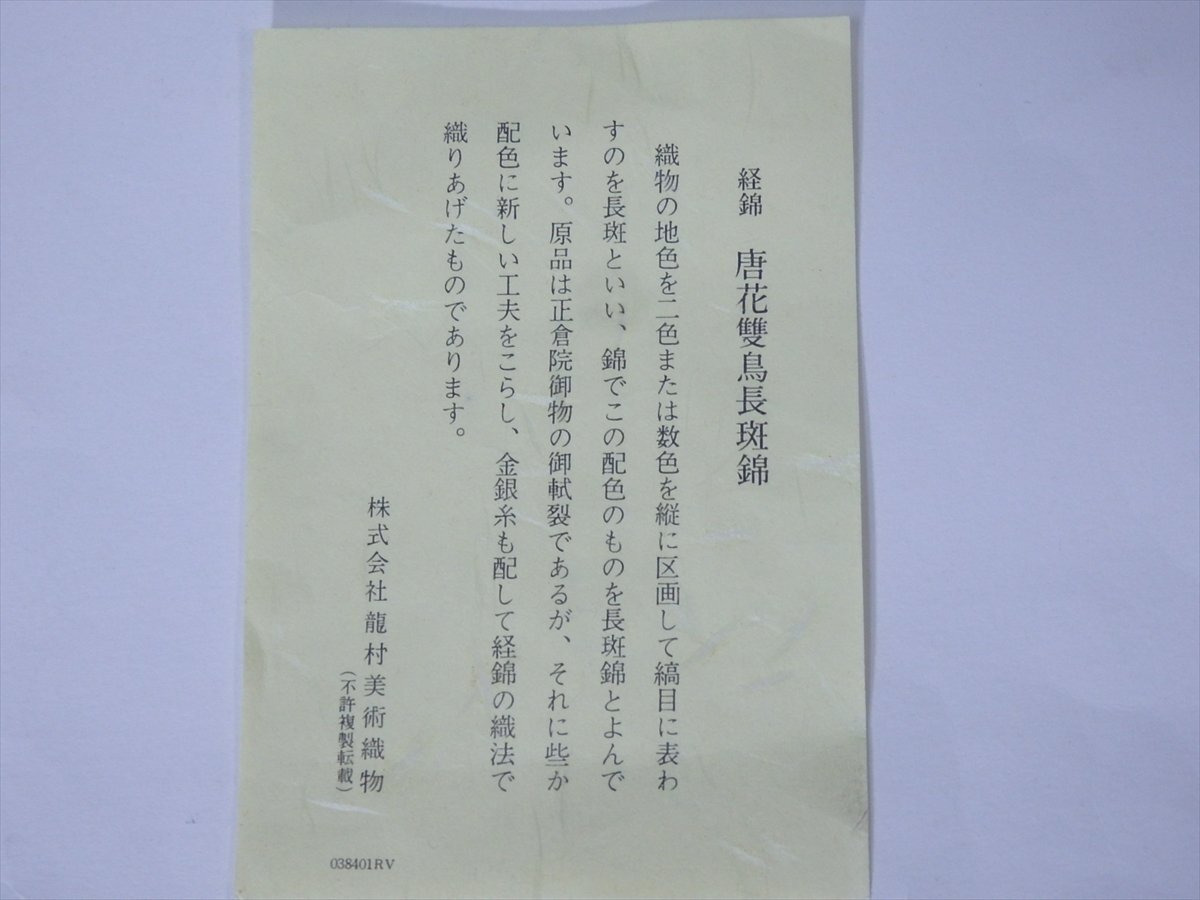 経錦　唐花雙鳥長斑錦
織物の地色を二色または数色を縦に区画して縞目に表わ
すのを長斑といい、錦でこの配色のものを長斑錦とよんで
います。原品は正倉院御物の御軾裂であるが、それに些か
配色に新しい工夫をこらし、金銀糸も配して経錦の織法で
織りあげたものであります。
株式会社龍村美術織物
（不許複製転載）
038401RV